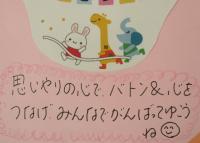 思いやりの心で、バトン&心を
つなげ みんなでがんばってゆこう
ね